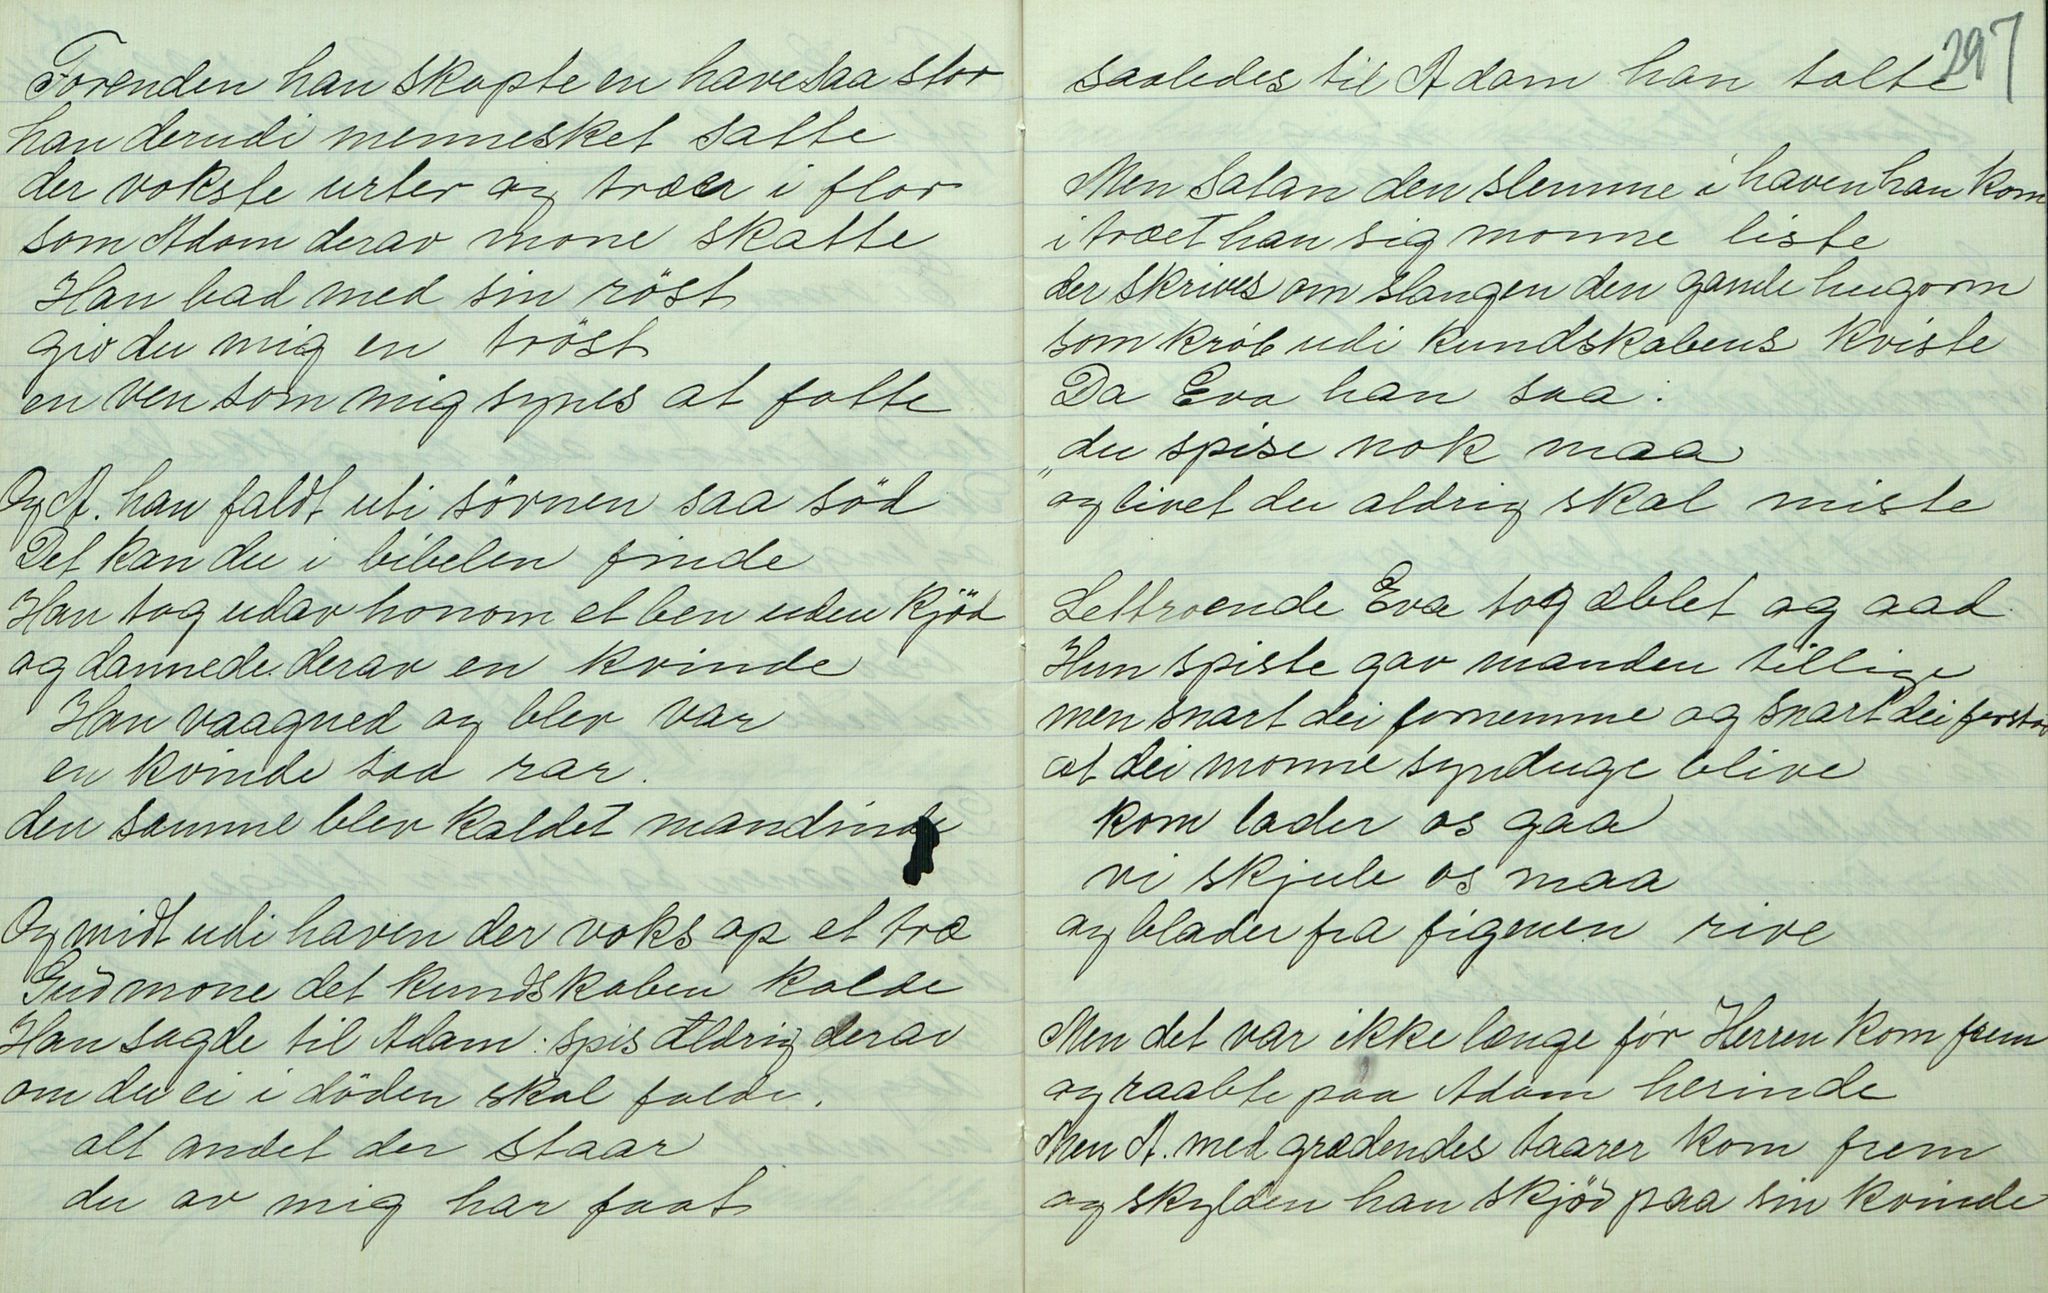 Forenden han skapte en have saa stor
han derudi mennesket satte
der vokste urter og træer i flor
som Adam derav mone skatte
Han bad med sin röst
giv du mig en tröst
en ven som mig synes at fatte
Og A. han faldt uti sövnen saa söd
Det kan du i bibelen finde
Han tog udav honom et ben uden kjöd
og dannede derav en kvinde
Han vaagned og blev var
en kvinde saa rar.
den samme blev kaldet mandinde
Og midt udi haven der voks op et træ
Gud mone det kundskaben kalde
Han sagde til Adam: spis aldrig derav
om du ei i döden skal falde.
alt andet der staar
du av mig har faat
297
saaledes til Adam han talte
Men Satan den slemme i haven han kom
i træet han sig monne liste
der skrives om slangen den gamle hugorm
som kröb udi kundskabens kviste
Da Eva han saa:
du spise nok maa
"og livet du aldrig skal miste
Lettroende Eva tog æblet og aad.
Hun spiste gav manden tillige
men snart dei fornemme og snart dei forstod
at dei monne synduge blive
kom lader os gaa
vi skjule os maa
og blader fra figenen rive
Men det var ikke længe för Herren kom frem
og raabte paa Adam herinde
Men A. med grædendes taarer kom frem
og skylden han skjöd paa sin kvinde